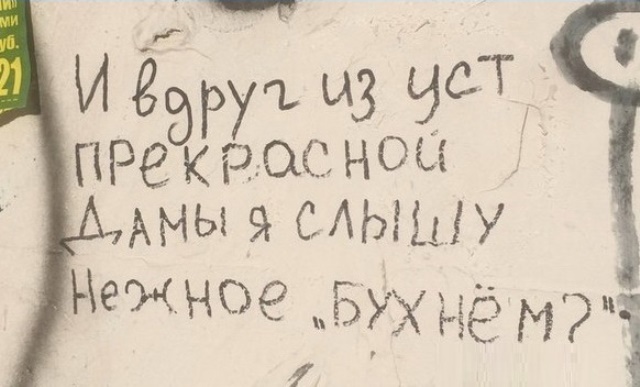 И вдруг из уст
прекрасной
Дамы я слышу
Нежное „Бухнём?"
уб.
21